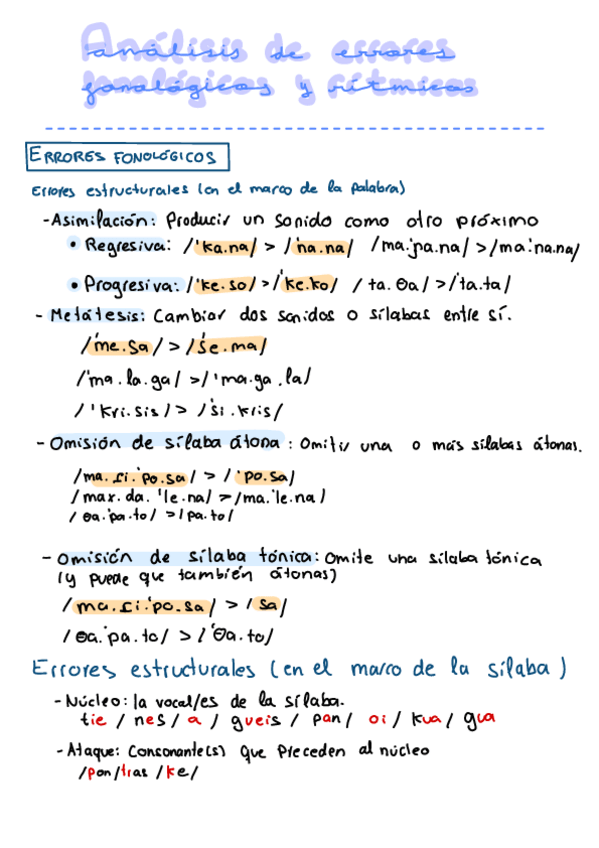 Análisis de errores
fonológicos y rítmicos
ERRORES FONOLÓGICOS
Errores estructurales (en el marco de la palabra)
-Asimilación: Producir un sonido como otro próximo
• Regresiva: /'ka.na/ > /'na.na/ /ma.'ɲa.na/ >/ma.'na.na/
• Progresiva: /'ke.so/ >/'ke.ko/ / ta. θa/ >/'ta.ta/
- Metátesis: Cambiar dos sonidos o sílabas entre sí.
/'me.sa/ > /'se.ma/
/'ma.la.ga/ >/'ma.ga.la/
/'kri.sis/ > /'si.kris/
- Omisión de sílaba átona: Omitir una o más sílabas átonas.
/ma.ɾi.'po.sa/ > /'po.sa/
/max.da.'le.na/ > /ma.'le.na/
/θa.'pa.to/ >/pa.to/
- Omisión de sílaba tónica: Omite una sílaba tónica
(y puede que también átonas)
/ma.ɾi.'po.sa/ > /sa/
/θa.'pa.to/ > /'θa.to/
Errores estructurales (en el marco de la sílaba)
- Núcleo: la vocal/es de la sílaba.
tie / nes / a / gueis / pan / oi / kua / gua
- Ataque: Consonante(s) que preceden al núcleo
/pan/tras /ke/